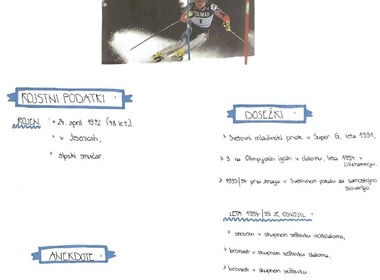 ROJSTNI PODATKI
ROJEN
24. april 1972 (48 let),
v Jesenicah,
alpski smučar.
ANEKDOTE
DOSEŽKI
> Svetovni mladinski prvak v Super G, leta 1991,
> 3. na Olimpijskih igrah v slalomu, leta 1994 v Lillehammerju.
> 1993/94 prva zmaga v Svetovnem pokalu za samostojno Slovenijo
LETA 1994/95 JE OSVOJIL
> srebrn v skupnem seštevku veleslaloma,
> bronast v skupnem seštevku slaloma,
> bronast v skupnem seštevku.